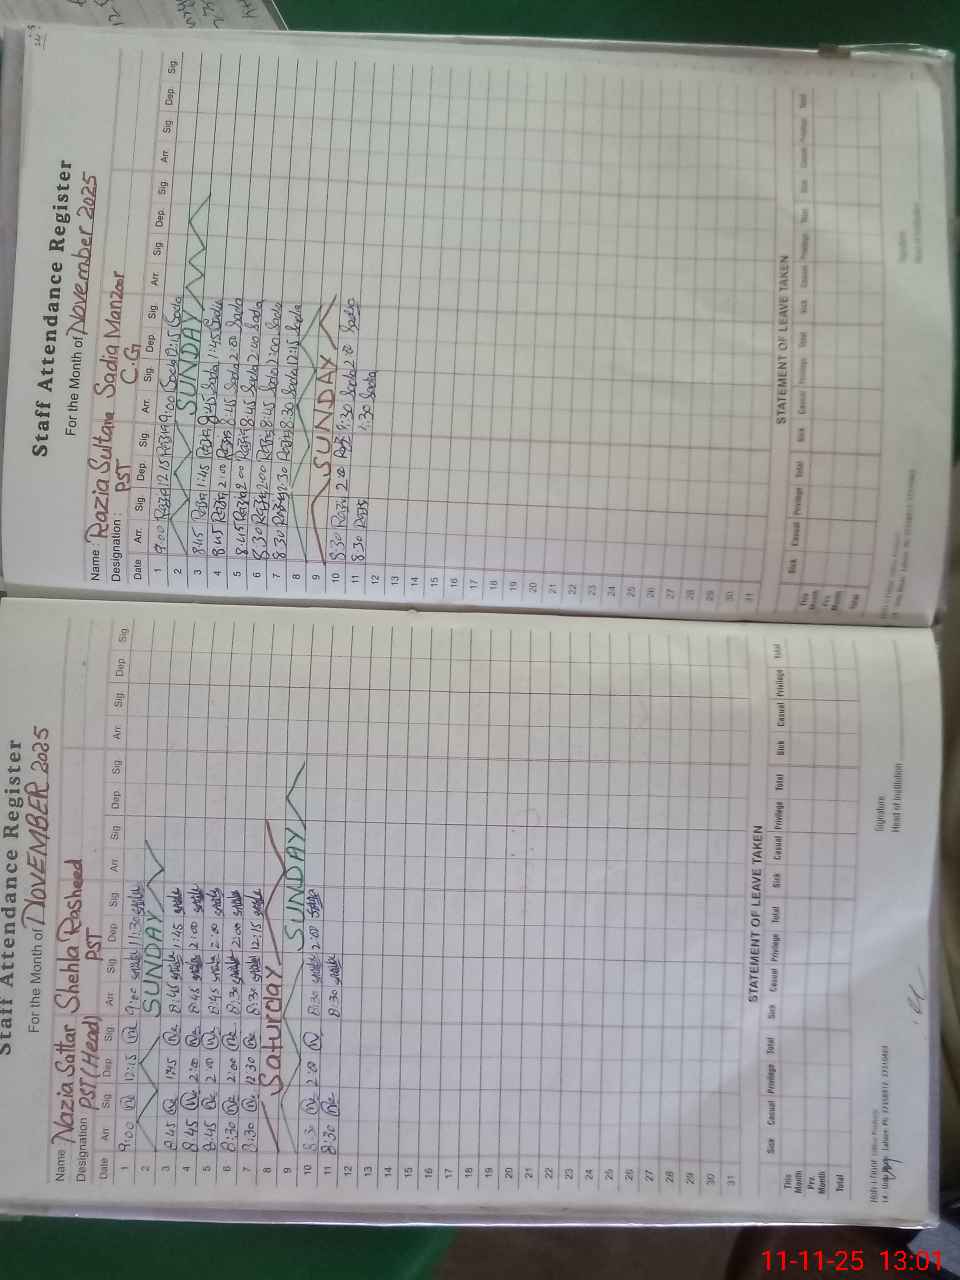 Staff Attendance Register
For the Month of NOVEMBER 2025
Name Nazia Sattar Shehla Rasheed
Designation PST (Head) PST
Date Arr. Sig. Dep. Sig. Arr. Sig. Dep. Sig. Arr. Sig. Dep. Sig. Arr. Sig. Dep. Sig.
1 9:00 12:15 9:00 11:30
2 SUNDAY
3 8:45 1:45 8:45 1:45
4 8:45 2:00 8:45 2:00
5 8:45 2:00 8:45 2:00
6 8:30 2:00 8:30 2:00
7 8:30 12:30 8:30 12:15
8 Saturday
9 SUNDAY
10 8:30 2:00 8:30 2:00
11 8:30 8:30
12
13
14
15
16
17
18
19
20
21
22
23
24
25
26
27
28
29
30
31
STATEMENT OF LEAVE TAKEN
Sick Casual Privilege Total Sick Casual Privilege Total Sick Casual Privilege Total Sick Casual Privilege Total
This Month
Prv. Month
Total
Signature
Head of Institution
Staff Attendance Register
For the Month of November 2025
Name: Razia Sultana Sadia Manzoor
Designation: PST C.G
Date Arr. Sig. Dep. Sig. Arr. Sig. Dep. Sig. Arr. Sig. Dep. Sig. Arr. Sig. Dep. Sig.
1 9:00 Razia 12:15 Razia 9:00 Sadia 12:15 Sadia
2 SUNDAY
3 8:45 Razia 1:45 Razia 8:45 Sadia 1:45 Sadia
4 8:45 Razia 2:00 Razia 8:45 Sadia 2:00 Sadia
5 8:45 Razia 2:00 Razia 8:45 Sadia 2:00 Sadia
6 8:30 Razia 2:00 Razia 8:45 Sadia 2:00 Sadia
7 8:30 Razia 12:30 Razia 8:30 Sadia 12:15 Sadia
8
9 SUNDAY
10 8:30 Razia 2:00 Razia 8:30 Sadia 2:00 Sadia
11 8:30 Razia 8:30 Sadia
12
13
14
15
16
17
18
19
20
21
22
23
24
25
26
27
28
29
30
31
STATEMENT OF LEAVE TAKEN
Sick Casual Privilege Total Sick Casual Privilege Total Sick Casual Privilege Total Sick Casual Privilege Total
This Month
Prv. Month
Total
11-11-25 13:01